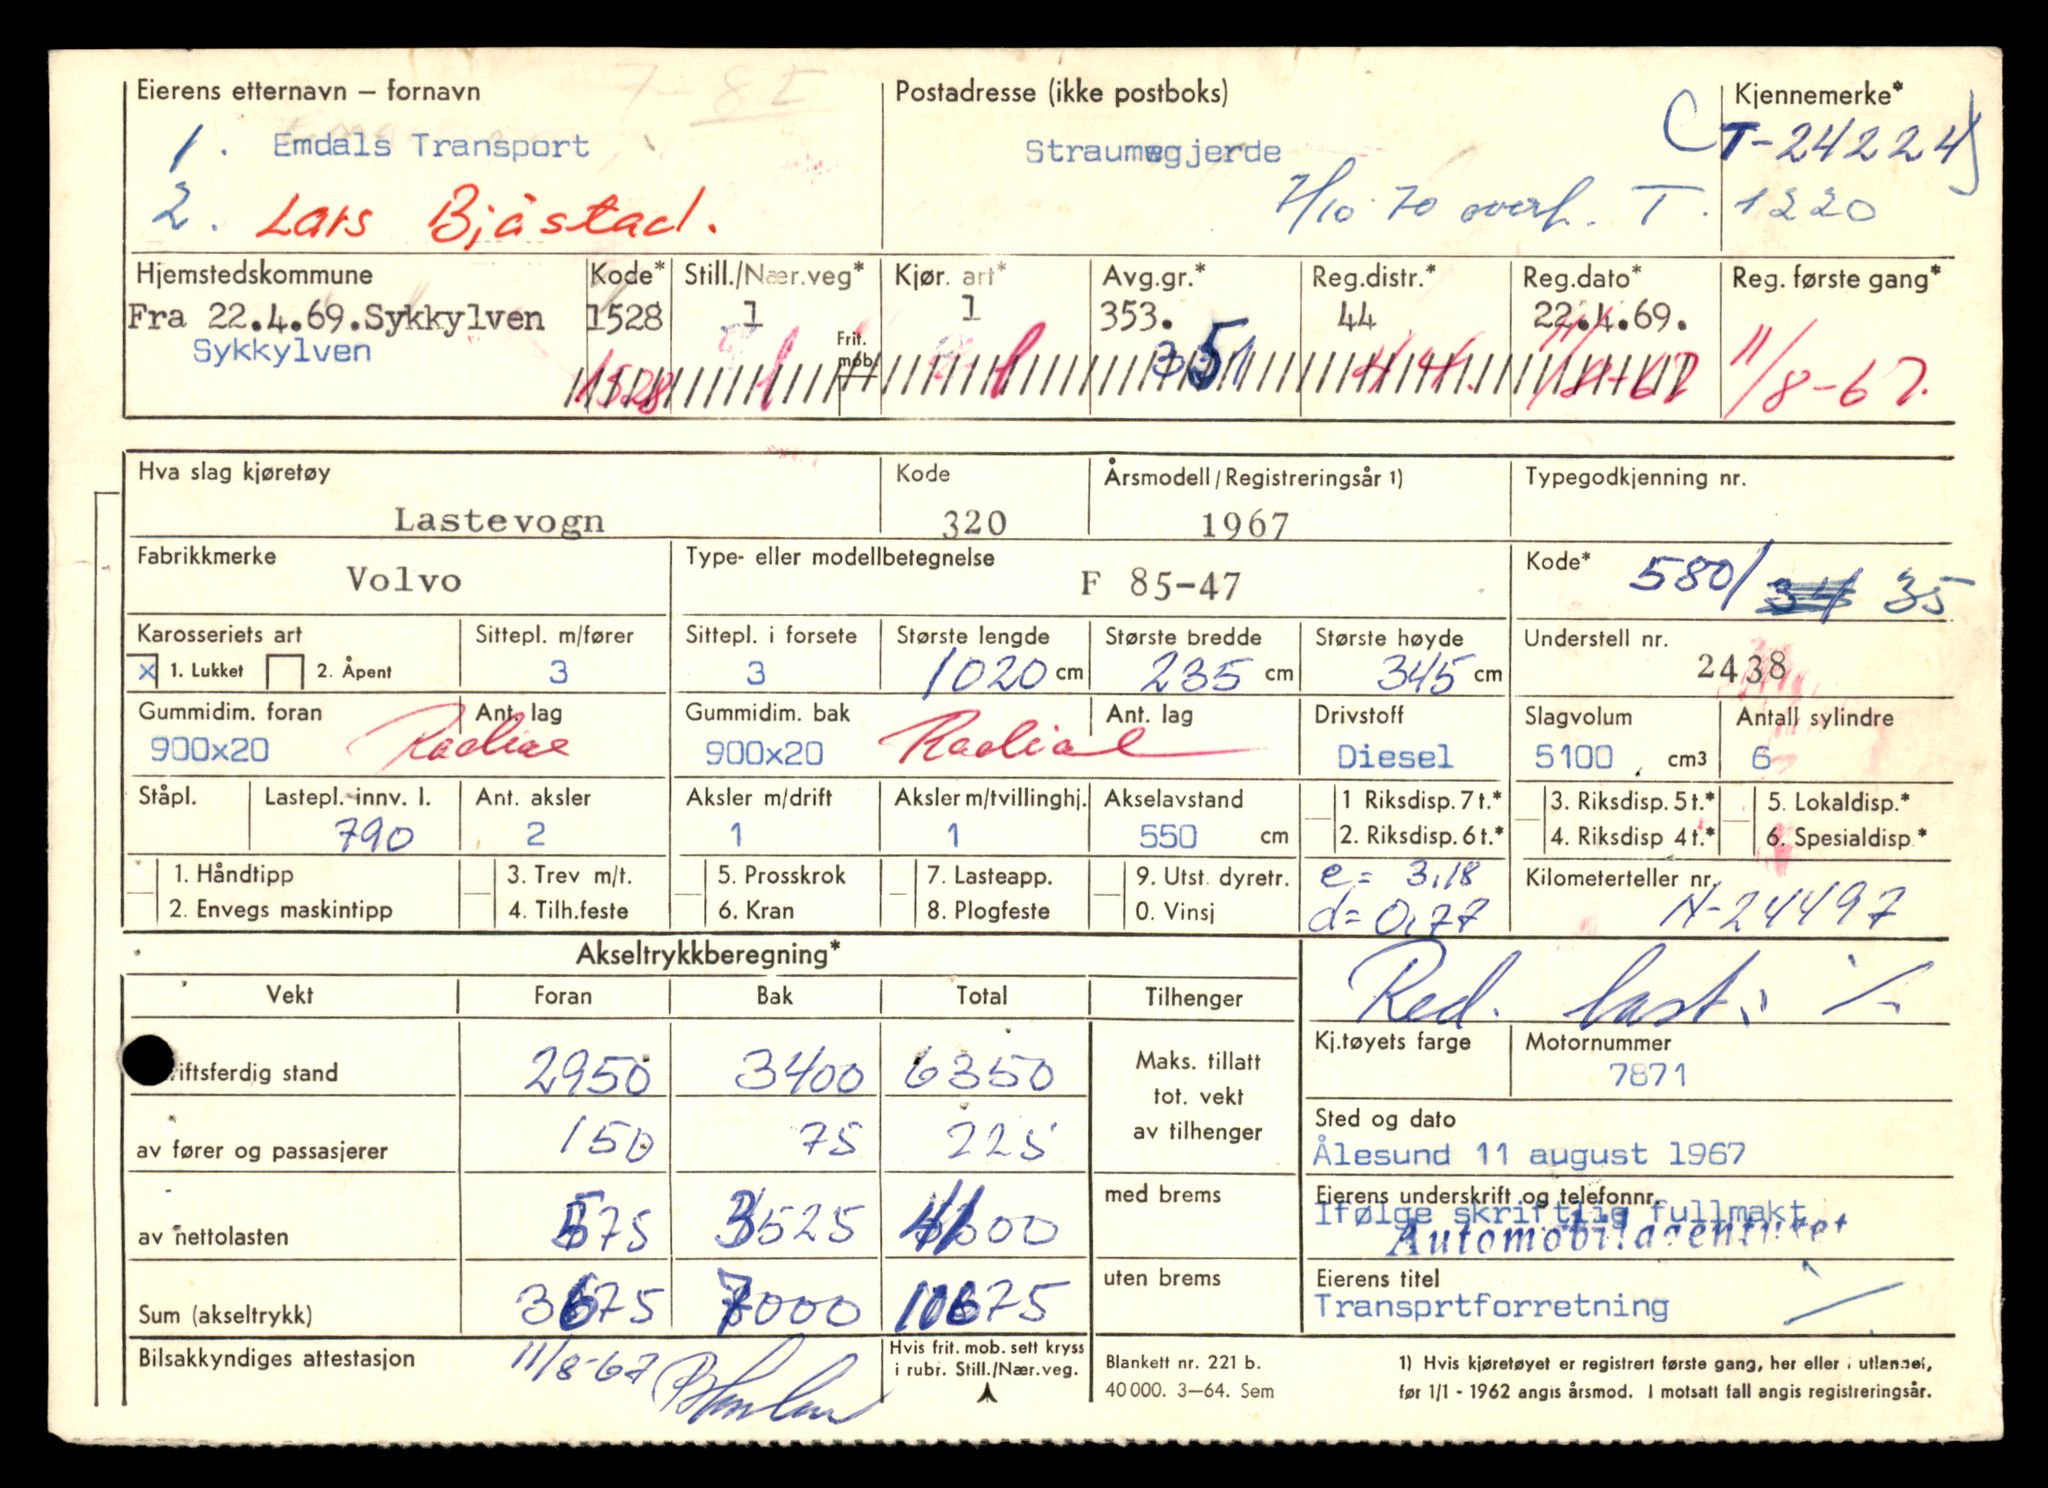 Eierens etternavn – fornavn
Postadresse (ikke postboks)
Kjennemerke*
1. Emdals Transport
Straumsgjerde
(T-24224)
2. Lars Bjåstad.
7/10 70 overf. T. 1220
Hjemstedskommune Kode* Still./Nær.veg* Kjør. art* Avg.gr.* Reg.distr.* Reg.dato* Reg. første gang*
Fra 22.4.69.Sykkylven 1528 1 1 353. 44 22.4.69.
Sykkylven
Frit. møb.
1528 1 1 351 44. 11/8-67 11/8-67.
Hva slag kjøretøy Kode Årsmodell/Registreringsår 1) Typegodkjenning nr.
Lastevogn 320 1967
Fabrikkmerke Type- eller modellbetegnelse Kode*
Volvo F 85-47 580/ 34 35
Karosseriets art Sittepl. m/fører Sittepl. i forsete Største lengde Største bredde Største høyde Understell nr.
x 1. Lukket 2. Åpent 3 3 1020 cm 235 cm 345 cm 2438
Gummidim. foran Ant. lag Gummidim. bak Ant. lag Drivstoff Slagvolum Antall sylindre
900x20 Radial 900x20 Radial Diesel 5100 cm3 6
Ståpl. Lastepl. innv. l. Ant. aksler Aksler m/drift Aksler m/tvillinghj. Akselavstand 1 Riksdisp. 7 t.* 3. Riksdisp. 5 t.* 5. Lokaldisp.*
790 2 1 1 550 cm 2. Riksdisp. 6 t.* 4. Riksdisp 4 t.* 6. Spesialdisp*
1. Håndtipp 3. Trev m/t. 5. Prosskrok 7. Lasteapp. 9. Utst. dyretr. e= 3,18 Kilometerteller nr.
2. Envegs maskintipp 4. Tilh.feste 6. Kran 8. Plogfeste 0. Vinsj d= 0,77 N-24497
Akseltrykkberegning*
Red. last: /-
Vekt Foran Bak Total Tilhenger
Kj.tøyets farge Motornummer
7871
iftsferdig stand 2950 3400 6350
Maks. tillatt
tot. vekt
av tilhenger
Sted og dato
Ålesund 11 august 1967
av fører og passasjerer 150 75 225
med brems
Eierens underskrift og telefonnr.
Ifølge skriftlig fullmakt
Automobilagenturet
av nettolasten 575 3525 4100
uten brems
Eierens titel
Transprtforretning
Sum (akseltrykk) 3675 7000 10675
Bilsakkyndiges attestasjon 11/8-67
Hvis frit. mob. sett kryss
i rubr. Still./Nær.veg.
Blankett nr. 221 b.
40 000. 3—64. Sem
1) Hvis kjøretøyet er registrert første gang, her eller i utlandet,
før 1/1 - 1962 angis årsmod. I motsatt fall angis registreringsår.